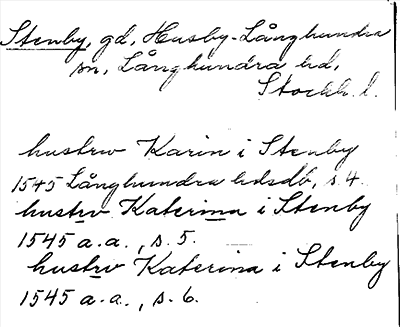 Stenby, gd, Husby-Långhundra
sn, Långhundra hd,
Stockh. l.
hustrv Karin i Stenby
1545 Långhundra hdsdb, s. 4.
hustrv Katerina i Stenby
1545 a.a., s. 5.
hustrv Katerina i Stenby
1545 a.a., s. 6.